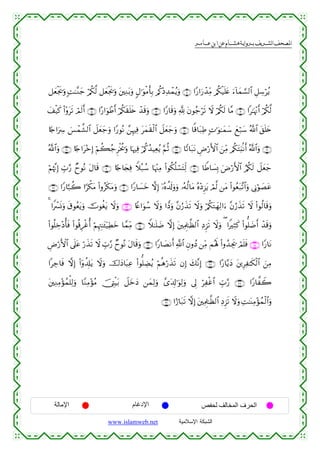 المصحف الشريف برواية هشام عن ابن عامر
يُرْسِلِ السَّمَآءَ عَلَيْكُم مِّدْرَارًا ۝ وَيُمْدِدْكُم بِأَمْوَٰلٍ وَبَنِينَ وَيَجْعَل لَّكُمْ جَنَّٰتٍ وَيَجْعَل
لَّكُمْ أَنْهَٰرًا ۝ مَّا لَكُمْ لَا تَرْجُونَ لِلَّهِ وَقَارًا ۝ وَقَدْ خَلَقَكُمْ أَطْوَارًا ۝ أَلَمْ تَرَوْا۟ كَيْفَ
خَلَقَ اللَّهُ سَبْعَ سَمَٰوَٰتٍ طِبَاقًا ۝ وَجَعَلَ الْقَمَرَ فِيهِنَّ نُورًا وَجَعَلَ الشَّمْسَ سِرَاجًا
۝ وَاللَّهُ أَنۢبَتَكُم مِّنَ الْأَرْضِ نَبَاتًا ۝ ثُمَّ يُعِيدُكُمْ فِيهَا وَيُخْرِجُكُمْ إِخْرَاجًا ۝ وَاللَّهُ
جَعَلَ لَكُمُ الْأَرْضَ بِسَاطًا ۝ لِّتَسْلُكُوا۟ مِنْهَا سُبُلًا فِجَاجًا ۝ قَالَ نُوحٌ رَّبِّ إِنَّهُمْ
عَصَوْنِى وَاتَّبَعُوا۟ مَن لَّمْ يَزِدْهُ مَالُهُ وَوَلَدُهُ إِلَّا خَسَارًا ۝ وَمَكَرُوا۟ مَكْرًا كُبَّارًا ۝
وَقَالُوا۟ لَا تَذَرُنَّ ءَالِهَتَكُمْ وَلَا تَذَرُنَّ وَدًّا وَلَا سُوَاعًا وَلَا يَغُوثَ وَيَعُوقَ وَنَسْرًا ۝
وَقَدْ أَضَلُّوا۟ كَثِيرًا وَلَا تَزِدِ الظَّٰلِمِينَ إِلَّا ضَلَٰلًا ۝ مِّمَّا خَطِيٓـَٰٔتِهِمْ أُغْرِقُوا۟ فَأُدْخِلُوا۟
نَارًا ۝ فَلَمْ يَجِدُوا۟ لَهُم مِّن دُونِ اللَّهِ أَنصَارًا ۝ وَقَالَ نُوحٌ رَّبِّ لَا تَذَرْ عَلَى الْأَرْضِ
مِنَ الْكَٰفِرِينَ دَيَّارًا ۝ إِنَّكَ إِن تَذَرْهُمْ يُضِلُّوا۟ عِبَادَكَ وَلَا يَلِدُوٓا۟ إِلَّا فَاجِرًا
كَفَّارًا ۝ رَّبِّ اغْفِرْ لِى وَلِوَٰلِدَىَّ وَلِمَن دَخَلَ بَيْتِى مُؤْمِنًا وَلِلْمُؤْمِنِينَ
وَالْمُؤْمِنَٰتِ وَلَا تَزِدِ الظَّٰلِمِينَ إِلَّا تَبَارًا ۝
الحرف المخالف لحفص الإدغام الإمالة
www.islamweb.net الشبكة الإسلامية